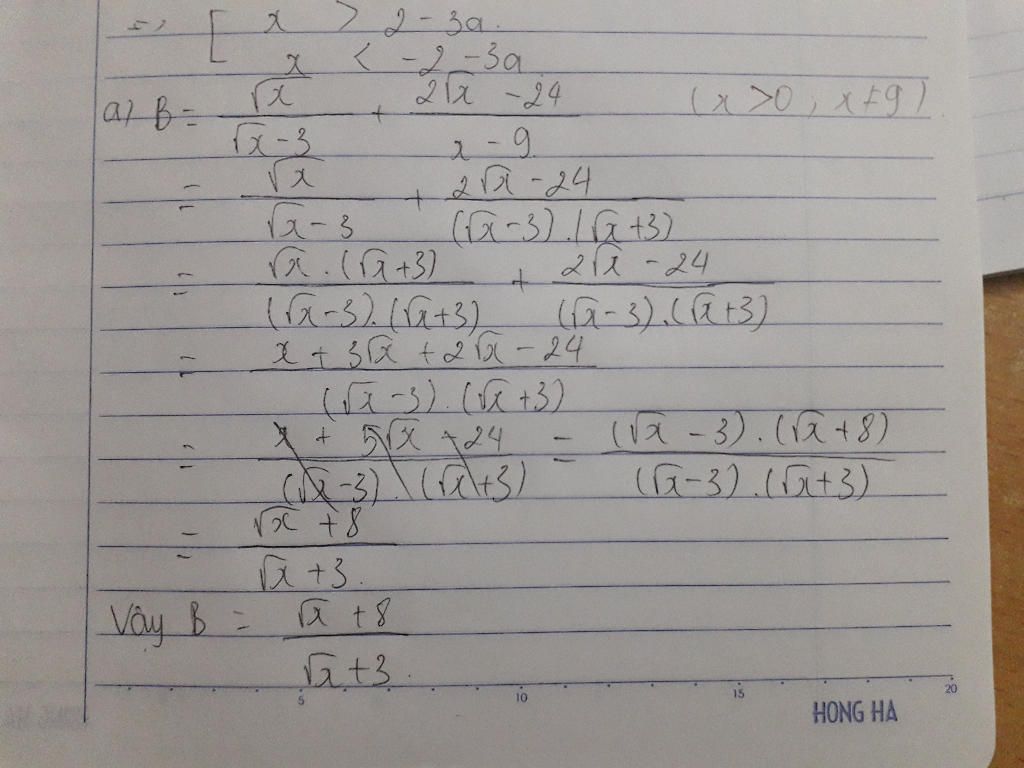 => [ x > 2 - 3a.
x < -2 - 3a.
a) B = √x / (√x - 3) + (2√x - 24) / (x - 9) (x > 0, x ≠ 9)
= √x / (√x - 3) + (2√x - 24) / ((√x - 3).(√x + 3))
= √x.(√x + 3) / ((√x - 3).(√x + 3)) + (2√x - 24) / ((√x - 3).(√x + 3))
= (x + 3√x + 2√x - 24) / ((√x - 3).(√x + 3))
= (x + 5√x - 24) / ((√x - 3).(√x + 3)) = (√x - 3).(√x + 8) / ((√x - 3).(√x + 3))
= (√x + 8) / (√x + 3).
Vậy B = (√x + 8) / (√x + 3).
5 10 15 20
HONG HA